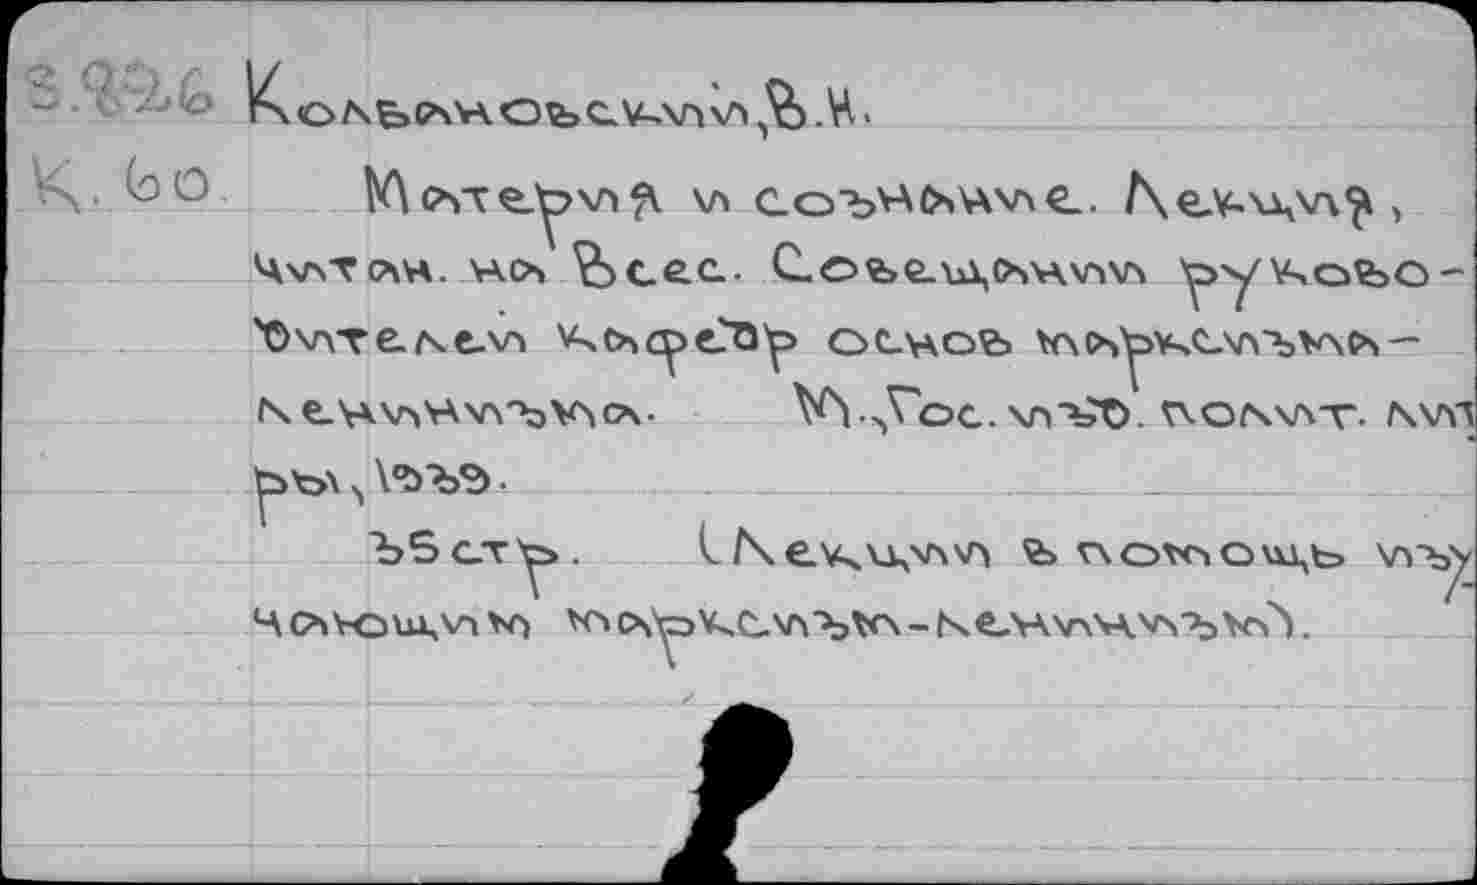 3.926 Кольбановский, В.Н.
К.60. Материя и сознание. Лекция,
читан. на Всес. Совещании руково-
дителей кафедр основ марксизма-
ленинизма. М., Гос. изд. полит. лит
ры, 1939.
35 стр. (Лекции в помощь изу-
чающим марксизм-ленинизм).